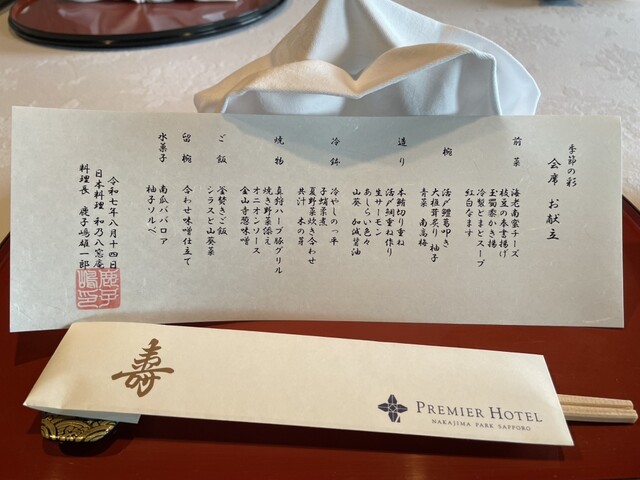 季節の彩
会席 お献立
前菜 海老南蛮チーズ
枝豆の春書揚げ
玉蜀黍かき揚
冷製とまとスープ
紅白なます
椀 活〆鱧葛叩き
大椎茸炙り 柚子
青菜 南高梅
造り 本鮪切り重ね
活〆鯛重ね作り
生サーモン
あしらい色々
山葵 加減醤油
冷鉢 冷やしのっ平
子蛸柔煮
夏野菜炊き合わせ
共汁 木の芽
焼物 真狩ハーブ豚グリル
焼き野菜添え
オニオンソース
金山寺葱味噌
ご飯 釜焚きご飯
シラスと山葵菜
留椀 合わせ味噌仕立て
水菓子 南瓜ババロア
柚子ソルベ
令和七年八月十四日
日本料理 和乃八窓庵
料理長 鹿子嶋雄一郎
寿
PREMIER HOTEL
NAKAJIMA PARK SAPPORO